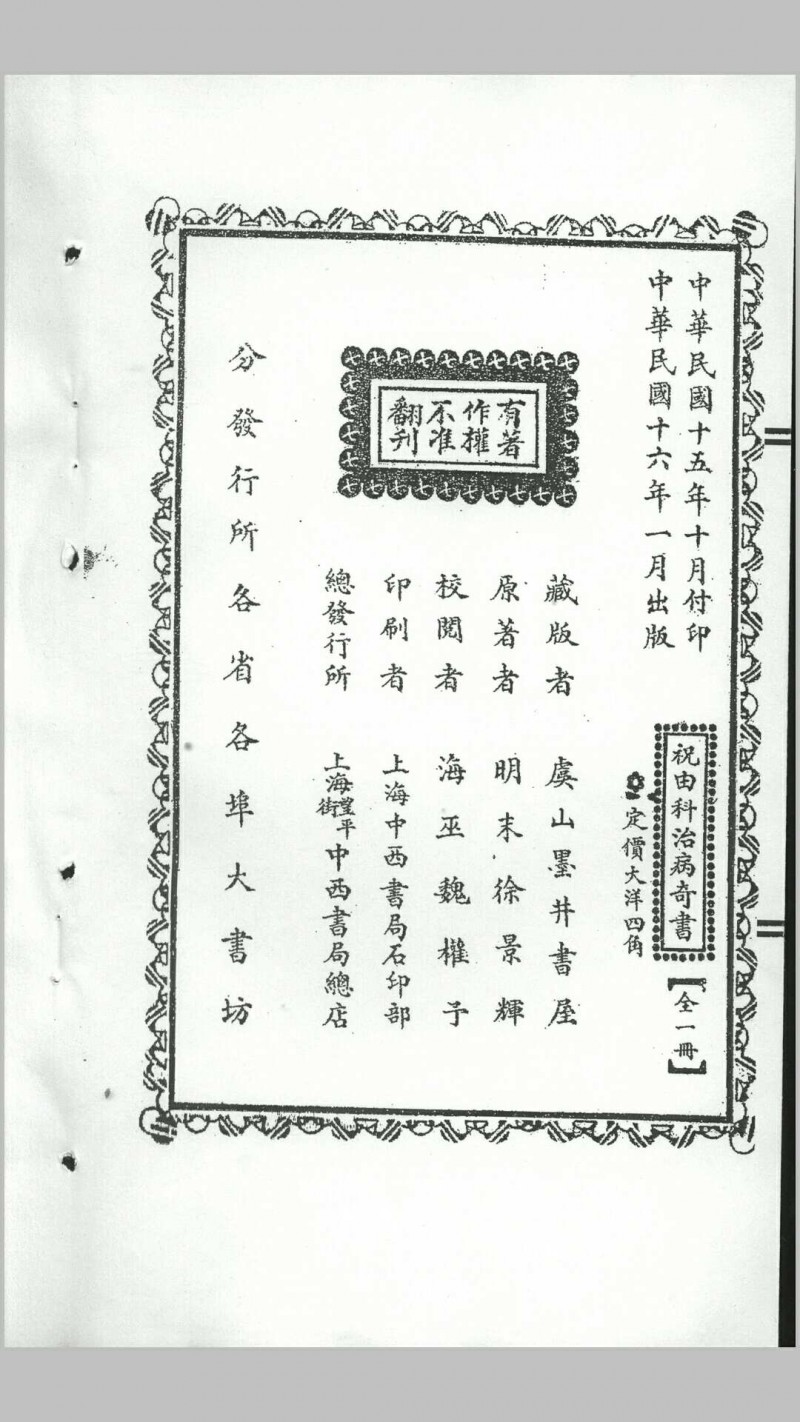 中華民國十五年十月付印
中華民國十六年一月出版
祝由科治病奇書
【全一冊】
定價大洋四角
有著
作權
不准
翻刊
藏版者 虞山墨井書屋
原著者 明末徐景輝
校閱者 海巫魏權予
印刷者 上海中西書局石印部
總發行所 上海望平街中西書局總店
分發行所各省各埠大書坊